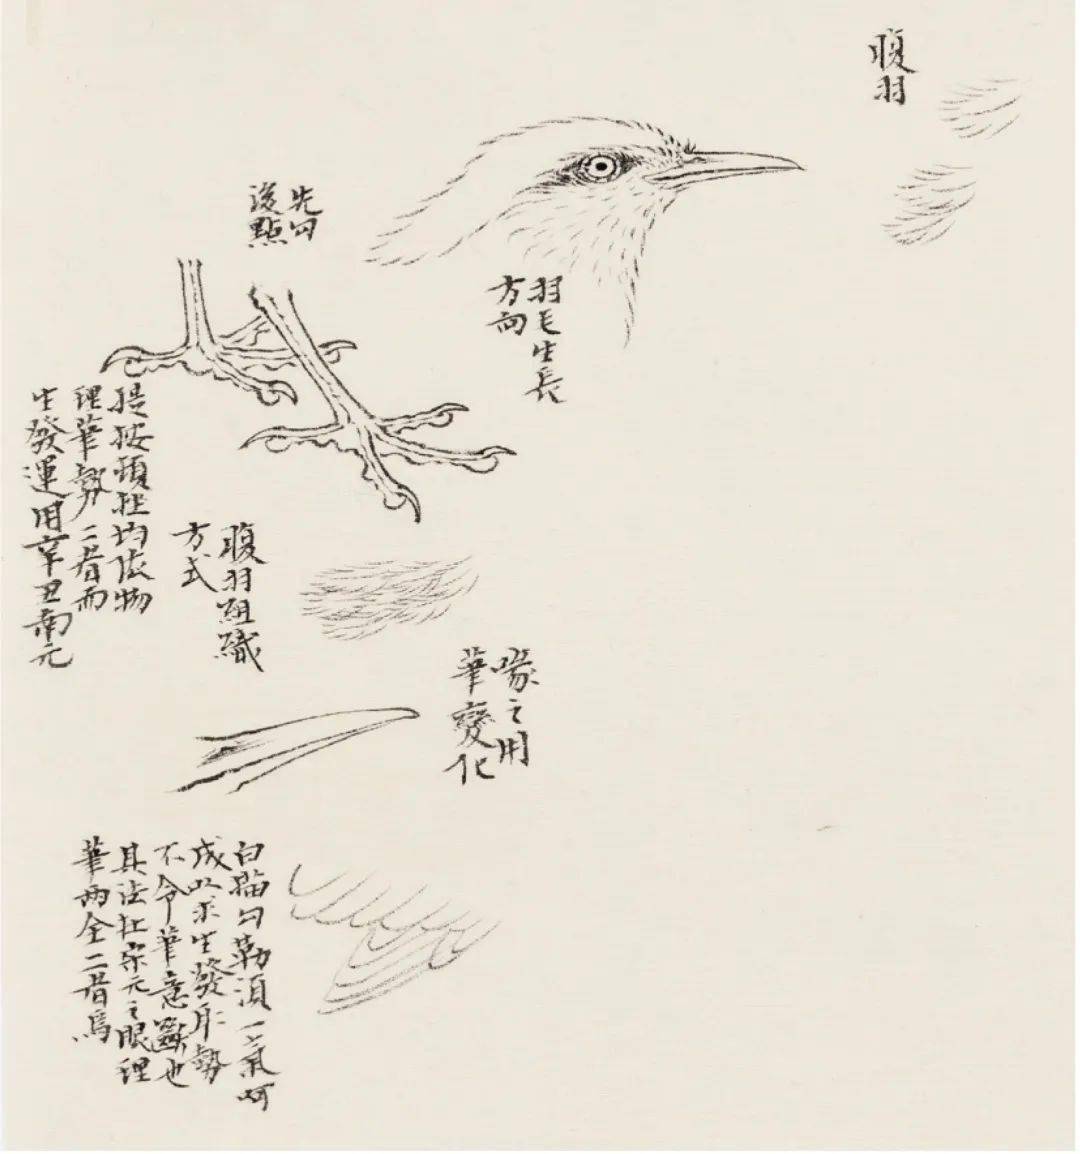 腹羽
先勾
後點
羽毛生長
方向
提按頓挫均依物
理筆勢二者而
生發運用辛丑南元
腹羽組織
方式
喙之用
筆變化
白描勾勒須一氣呵
成以求生發形勢
不令筆意斷也
其法在宋元之眼理
筆兩全二者焉